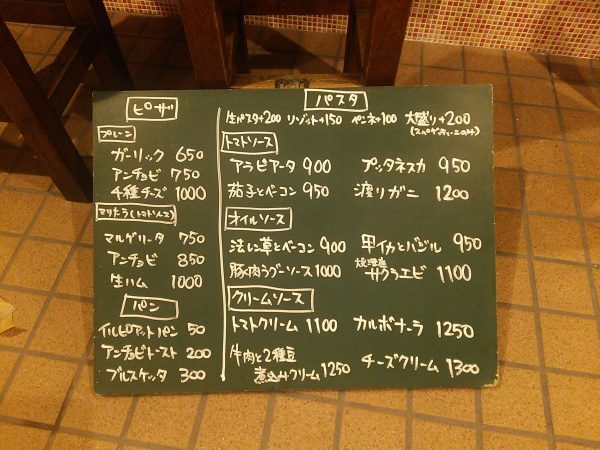 ピザ
プレーン
ガーリック 650
アンチョビ 750
4種チーズ 1000
マリナラ(トマトソース)
マルゲリータ 750
アンチョビ 850
生ハム 1000
パン
イルピアットパン 50
アンチョビトースト 200
ブルスケッタ 300
パスタ
生パスタ+200 リゾット+150 ペンネ+100 大盛り+200
(スパゲティーニのみ)
トマトソース
アラビアータ 900 プッタネスカ 950
茄子とベーコン 950 渡りガニ 1200
オイルソース
法レン草とベーコン 900 甲イカとバジル 950
豚肉ラグーソース 1000 サクラエビ 1100
クリームソース
トマトクリーム 1100 カルボナーラ 1250
牛肉と2種豆
煮込みクリーム 1250 チーズクリーム 1300